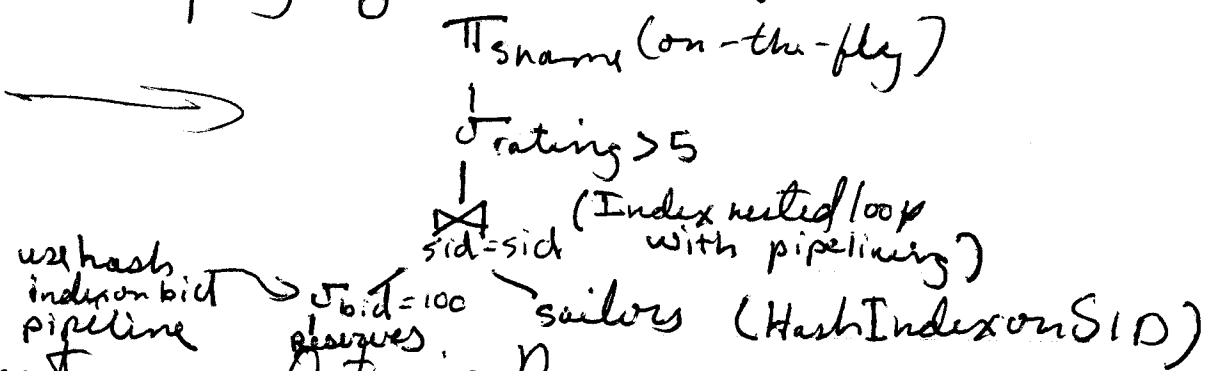 π sname (on-the-fly)
σ rating > 5
(Index nested loop
with pipelining)
⋈
sid=sid
use hash
index on bid
pipeline
σ bid=100
Reserves
sailors (Hash Index on SID)